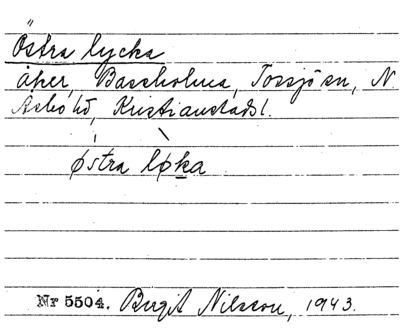 Östra lycka
åker, Baseholma, Tossjö sn, N.
Asbo hd, Kristianstads l.
østra løka
Nr 5504. Birgit Nilsson, 1943.